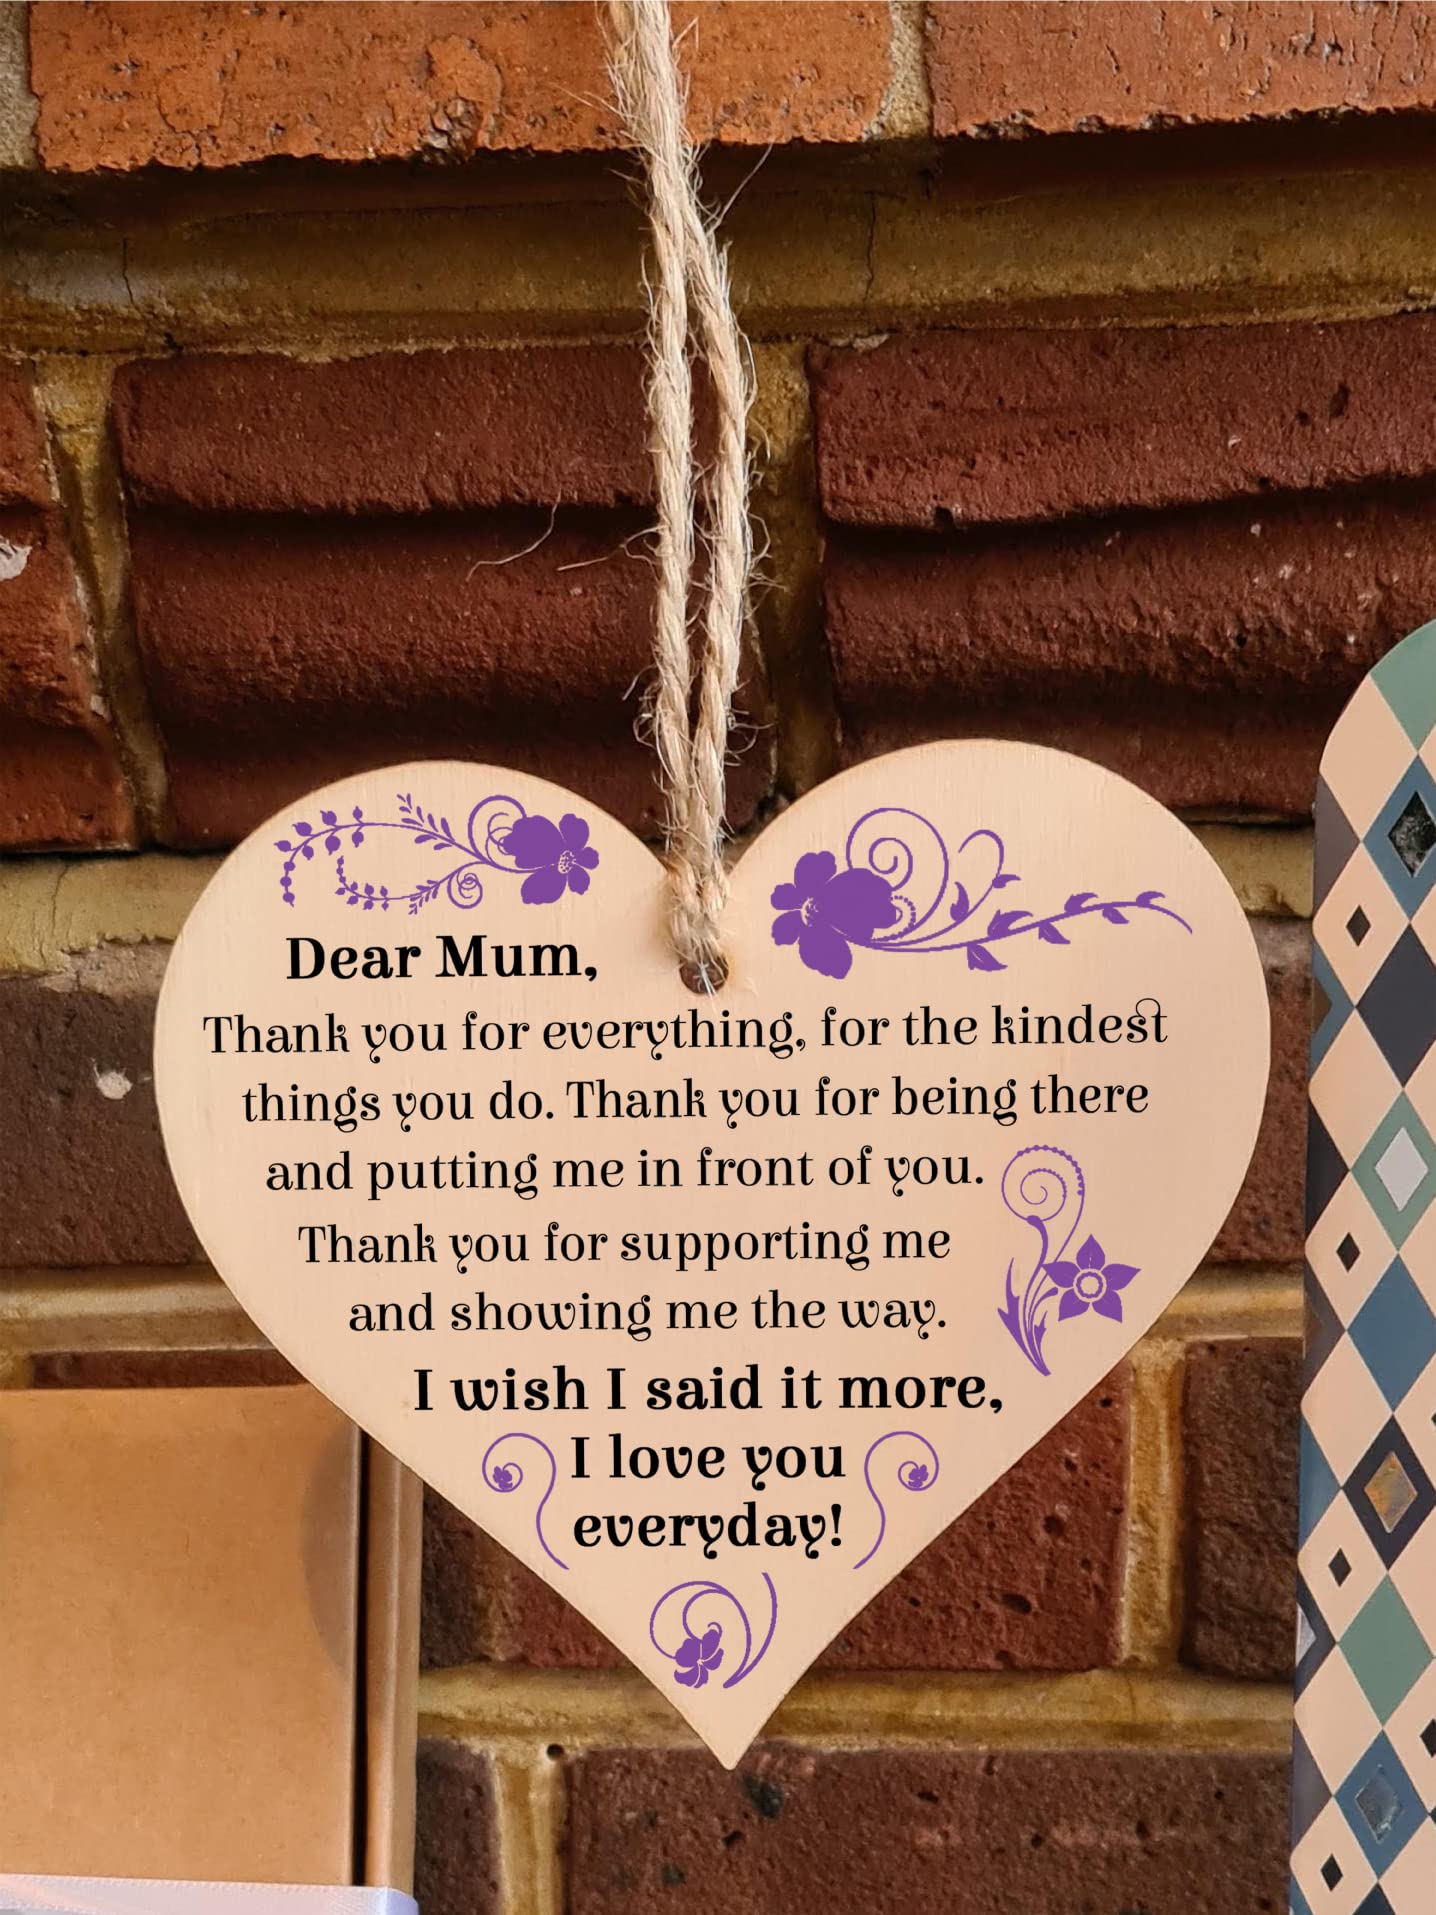 Dear Mum,
Thank you for everything, for the kindest
things you do. Thank you for being there
and putting me in front of you.
Thank you for supporting me
and showing me the way.
I wish I said it more,
I love you
everyday!